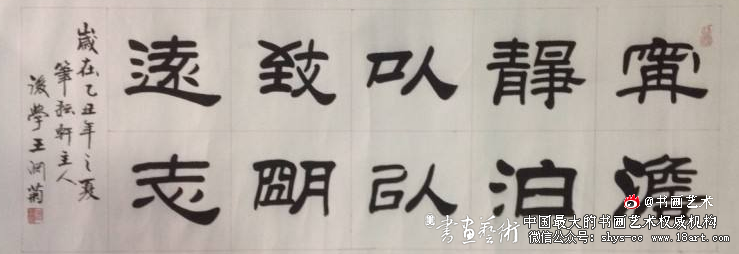 寧靜以致遠
澹泊以明志
歲在乙丑年之夏
筆耘軒主人
後學王润菊
書畫藝術
@书画艺术
中国最大的书画艺术权威机构
微信公众号: shys-cc www.18art.com